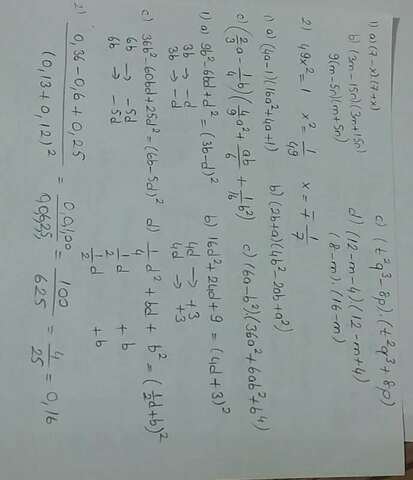 1) a) (7-x)(7+x) c) (t²q³-8p).(t²q³+8p)
b) (3m-15n)(3m+15n) d) (12-m-4)(12-m+4)
9(m-5n)(m+5n) (8-m).(16-m)
2) 49x²=1 x²=1/49 x=∓1/7
1) a) (4a-1)(16a²+4a+1) b) (2b+a)(4b²-2ab+a²)
c) (6a-b²)(36a²+6ab²+b⁴)
d) (2/3a-1/4b)(4/9a²+ab/6+1/16b²)
1) a) 9b²-6bd+d²=(3b-d)² b) 16d²+24d+9=(4d+3)²
3b → -d 4d → +3
3b → -d 4d → +3
c) 36b²-60bd+25d²=(6b-5d)² d) 1/4d²+bd+b²=(1/2d+b)²
6b → -5d 1/2d +b
6b → -5d 1/2d +b
2) 0,36-0,6+0,25/(0,13+0,12)² = 0,0100/0,0625 = 100/625 = 4/25 = 0,16